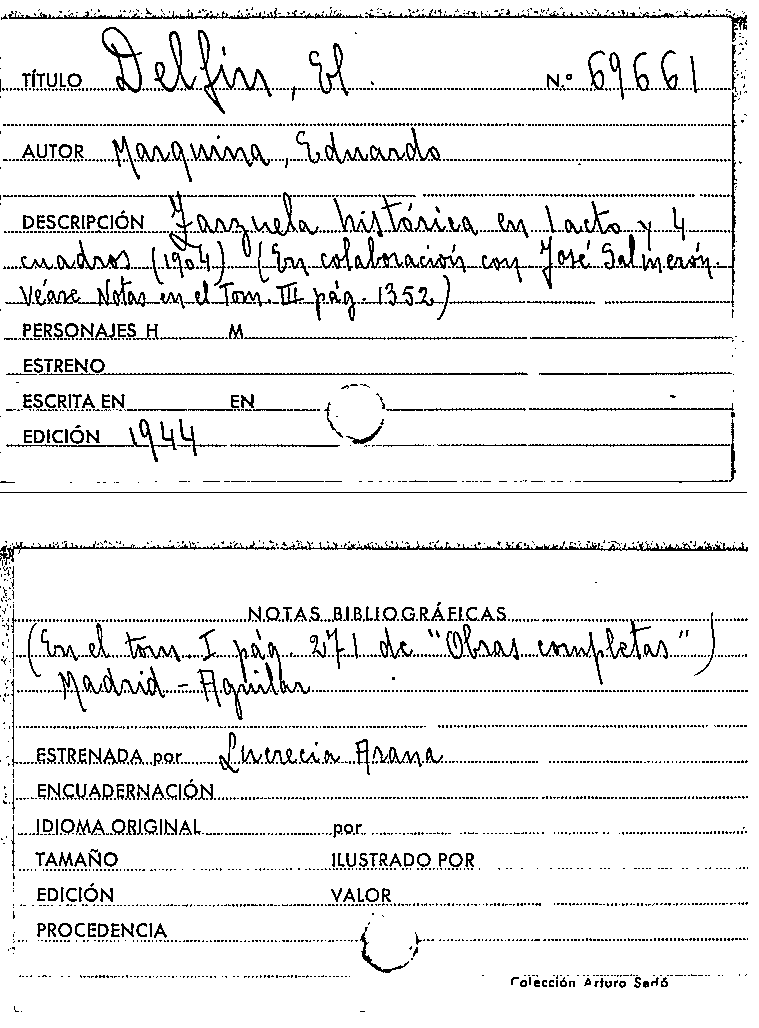 TÍTULO Delfín, El. N.º 69661
AUTOR Marquina, Eduardo
DESCRIPCIÓN Zarzuela histórica en 1 acto y 4
cuadros (1904) (En colaboración con José Salmerón.
Véase Notas en el Tom. III pág. 1352)
PERSONAJES H M
ESTRENO
ESCRITA EN EN
EDICIÓN 1944
NOTAS BIBLIOGRÁFICAS
(En el tom. I pág. 271 de "Obras completas")
Madrid - Aguilar
ESTRENADA por Lucrecia Arana
ENCUADERNACIÓN
IDIOMA ORIGINAL por
TAMAÑO ILUSTRADO POR
EDICIÓN VALOR
PROCEDENCIA
Colección Arturo Sedó